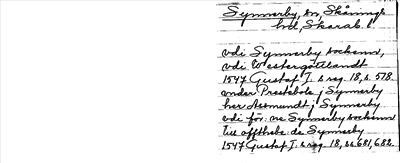 Synnerby, sn, Skånings
hd, Skarab. l.
vdi Synnerby sockenn,
vdi Westergöttlandt
1547 Gustaf I. s reg. 18, s. 578.
vnder Prestebole j Synnerby
her Asmundt j Synnerby
vdi för:ne Synnerby sockenn
till affthebe de Synnerby
1547 Gustaf I. s reg. 18, ss. 681, 682.